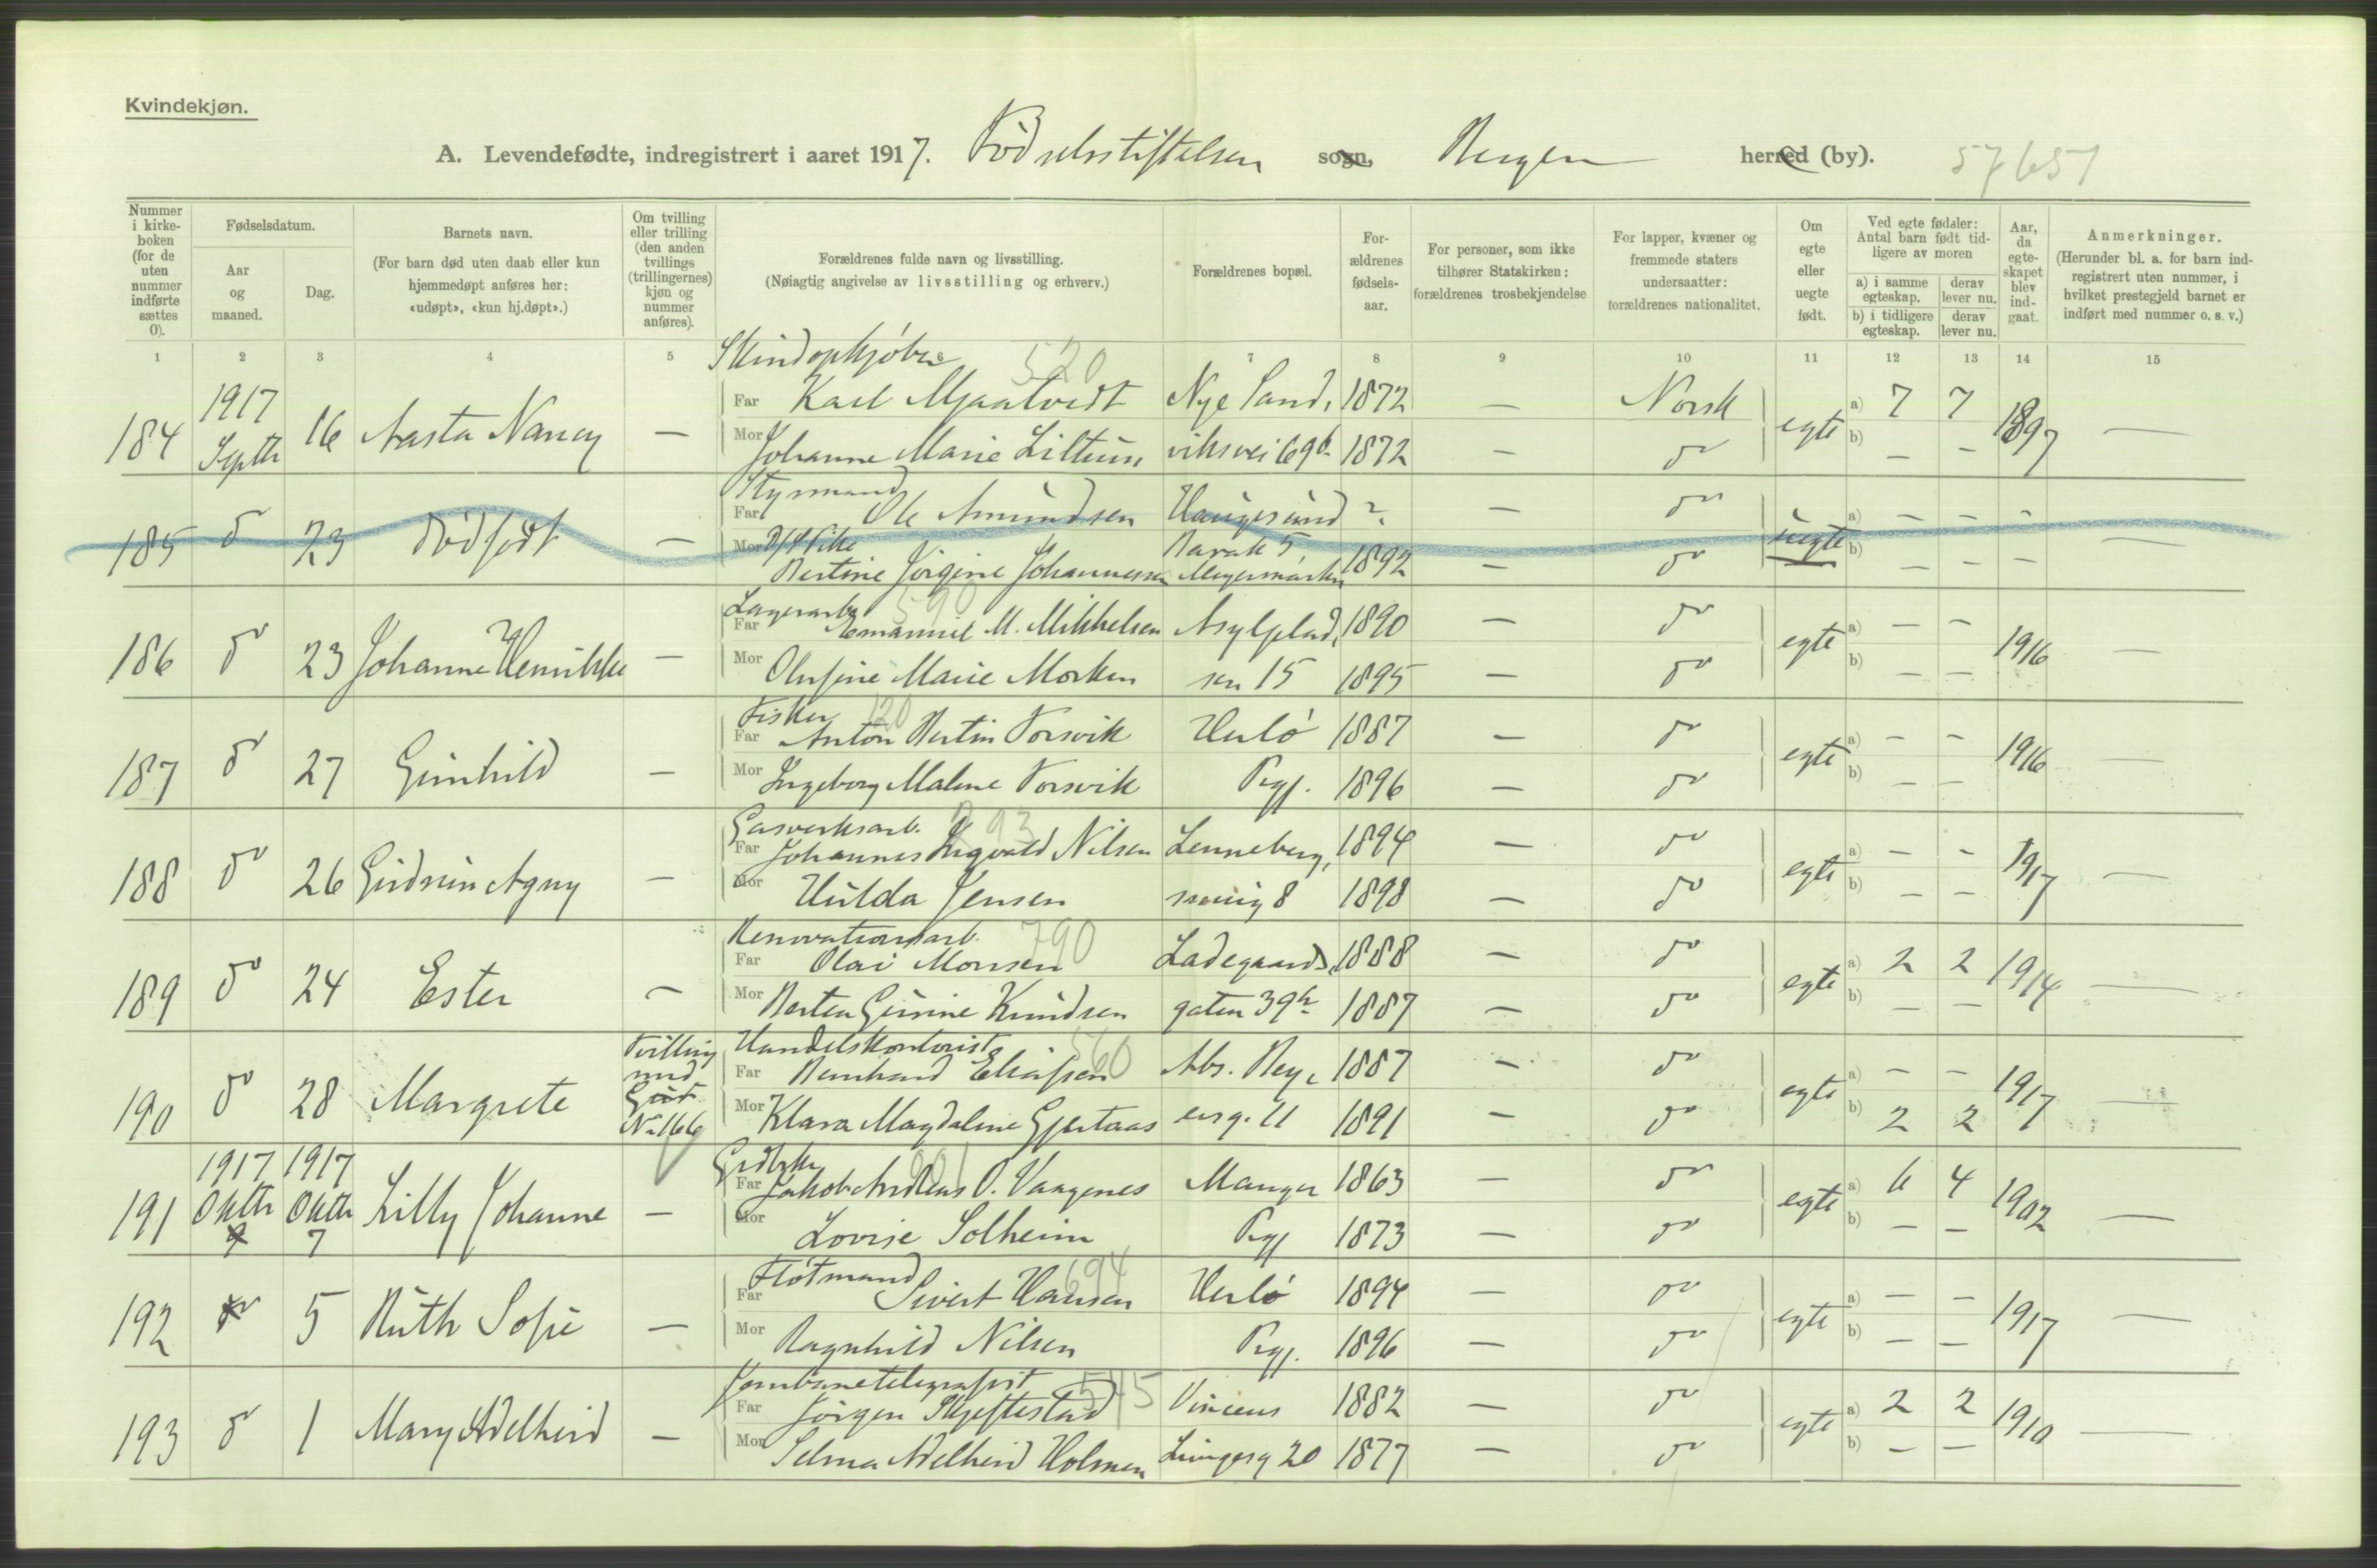 Kvindekjøn.
A. Levendefødte, indregistrert i aaret 1917. Fødselsstiftelsen sogn, Bergen herred (by). 57651
Nummer i kirkeboken (for de uten nummer indførte sættes 0).
Fødselsdatum.
Aar og maaned.
Dag.
Barnets navn.
(For barn død uten daab eller kun hjemmedøpt anføres her: «udøpt», «kun hj.døpt».)
Om tvilling eller trilling (den anden tvillings (trillingernes) kjøn og nummer anføres).
Forældrenes fulde navn og livsstilling.
(Nøiagtig angivelse av livsstilling og erhverv.)
Forældrenes bopæl.
For-ældrenes fødsels-aar.
For personer, som ikke tilhører Statskirken: forældrenes trosbekjendelse
For lapper, kvæner og fremmede staters undersaatter: forældrenes nationalitet.
Om egte eller uegte født.
Ved egte fødsler: Antal barn født tid-ligere av moren
a) i samme egteskap.
derav lever nu.
b) i tidligere egteskap.
derav lever nu.
Aar, da egte-skapet blev ind-gaat.
Anmerkninger.
(Herunder bl. a. for barn ind-registrert uten nummer, i hvilket prestegjeld barnet er indført med nummer o. s. v.)
1 2 3 4 5 6 7 8 9 10 11 12 13 14 15
Skindopkjøber 520
184 1917 Septbr 16 Aasta Nancy — Far Karl Mjaatvedt Nye Sand, 1872 — Norsk egte a) 7 7 1897 —
Mor Johanne Marie viksvei 69b 1872 — do b) — —
Styrmand
185 do 23 Dødfødt — Far Ole Amundsen Haugesund ? — do uegte a) — — -
Mor Barak 5,
Bertine Jørgine Johannessen Møyermarken 1892 — do b) — — —
Lagerarb. 590
186 do 23 Johanne Henrikke — Far Emanuel M. Mikkelsen Asylplad, 1890 — do egte a) — — 1916 —
Mor Olufine Marie Morken sen 15 1895 — do b) — —
Fisker 120
187 do 27 Gunhild — Far Anton Bertin Torsvik Herlø 1887 — do egte a) — — 1916 —
Mor Ingeborg Malene Torsvik Pgj. 1896 — do b) — —
Gasverksarb. 293
188 do 26 Gudrun Agny — Far Johannes Ingvald Nilsen Lenneberg, 1894 — do egte a) — — 1917 —
Mor Hulda Jensen smug 8 1898 — do b) — —
Renovationsarb. 790
189 do 24 Ester — Far Olai Monsen Ladegaards, 1888 — do egte a) 2 2 1914 —
Mor Berta Gurine Knudsen gaten 39b 1887 — do b) — —
Tvilling med Gut No 166
Handelskontorist 560
190 do 28 Margrete Far Bernhard Eliassen Abs. Bey, 1887 — do egte a) — — 1917 —
Mor Klara Magdalene Gjertaas ersg. 11 1891 — do b) 2 2
1917 1917
191 Oktbr Oktbr 7 Lilly Johanne — Far Jakob Andreas O. Vaagenes Manger 1863 — do egte a) 6 4 1902 —
Mor Lovise Solheim Pgj 1873 — do b) — —
Fløtmand 694
192 do 5 Ruth Sofie — Far Sivert Hansen Herlø 1894 — do egte a) — — 1917 —
Mor Ragnhild Nilsen Pgj. 1896 — do b) — —
Jernbanetelegrafist 545
193 do 1 Mary Adelheid — Far Jørgen Skjeftestad Vincens 1882 — do egte a) 2 2 1910 —
Mor Selma Adelheid Holmen Lungesg 20 1877 — do b) — —